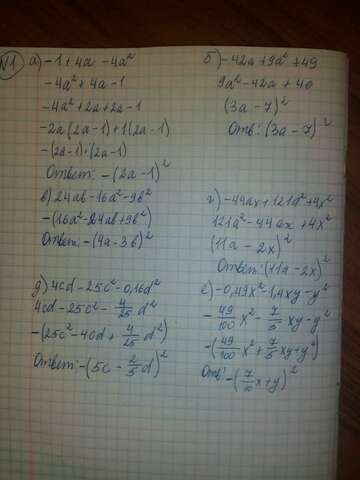 N1 а) -1 + 4a - 4a²
-4a² + 4a - 1
-4a² + 2a + 2a - 1
-2a(2a-1) + 1(2a-1)
-(2a-1)·(2a-1)
Ответ: -(2a-1)²
б) -42a + 9a² + 49
9a² - 42a + 40
(3a-7)²
Отв: (3a-7)²
в) 24ab - 16a² - 9b²
-(16a² - 24ab + 9b²)
Ответ: -(4a-3b)²
г) -44ax + 121a² + 4x²
121a² - 44ax + 4x²
(11a - 2x)²
Ответ: (11a - 2x)²
д) 4cd - 25c² - 0,16d²
4cd - 25c² - 4/25 d²
-(25c² - 4cd + 4/25 d²)
Ответ: -(5c - 2/5 d)²
е) -0,49x² - 1,4xy - y²
-49/100 x² - 7/5 xy - y²
-(49/100 x² + 7/5 xy + y²)
Отв: -(7/10 x + y)²